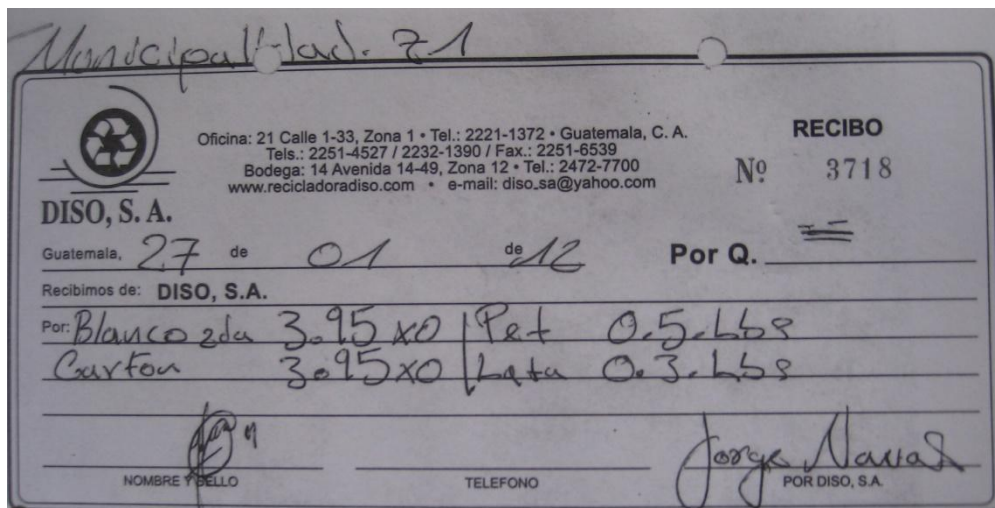 Municipalidad. Z1
Oficina: 21 Calle 1-33, Zona 1 • Tel.: 2221-1372 • Guatemala, C. A.
Tels.: 2251-4527 / 2232-1390 / Fax.: 2251-6539
Bodega: 14 Avenida 14-49, Zona 12 • Tel.: 2472-7700
www.recicladoradiso.com • e-mail: diso_sa@yahoo.com
RECIBO
Nº 3718
DISO, S. A.
Guatemala, 27 de 01 de 12 Por Q.
Recibimos de: DISO, S.A.
Por: Blanco 2da 3.95 x0 Pet 0.5.Lbs
Carton 3.95 x0 Lata 0.3.Lbs
Jorge
NOMBRE Y SELLO TELEFONO POR DISO, S.A.